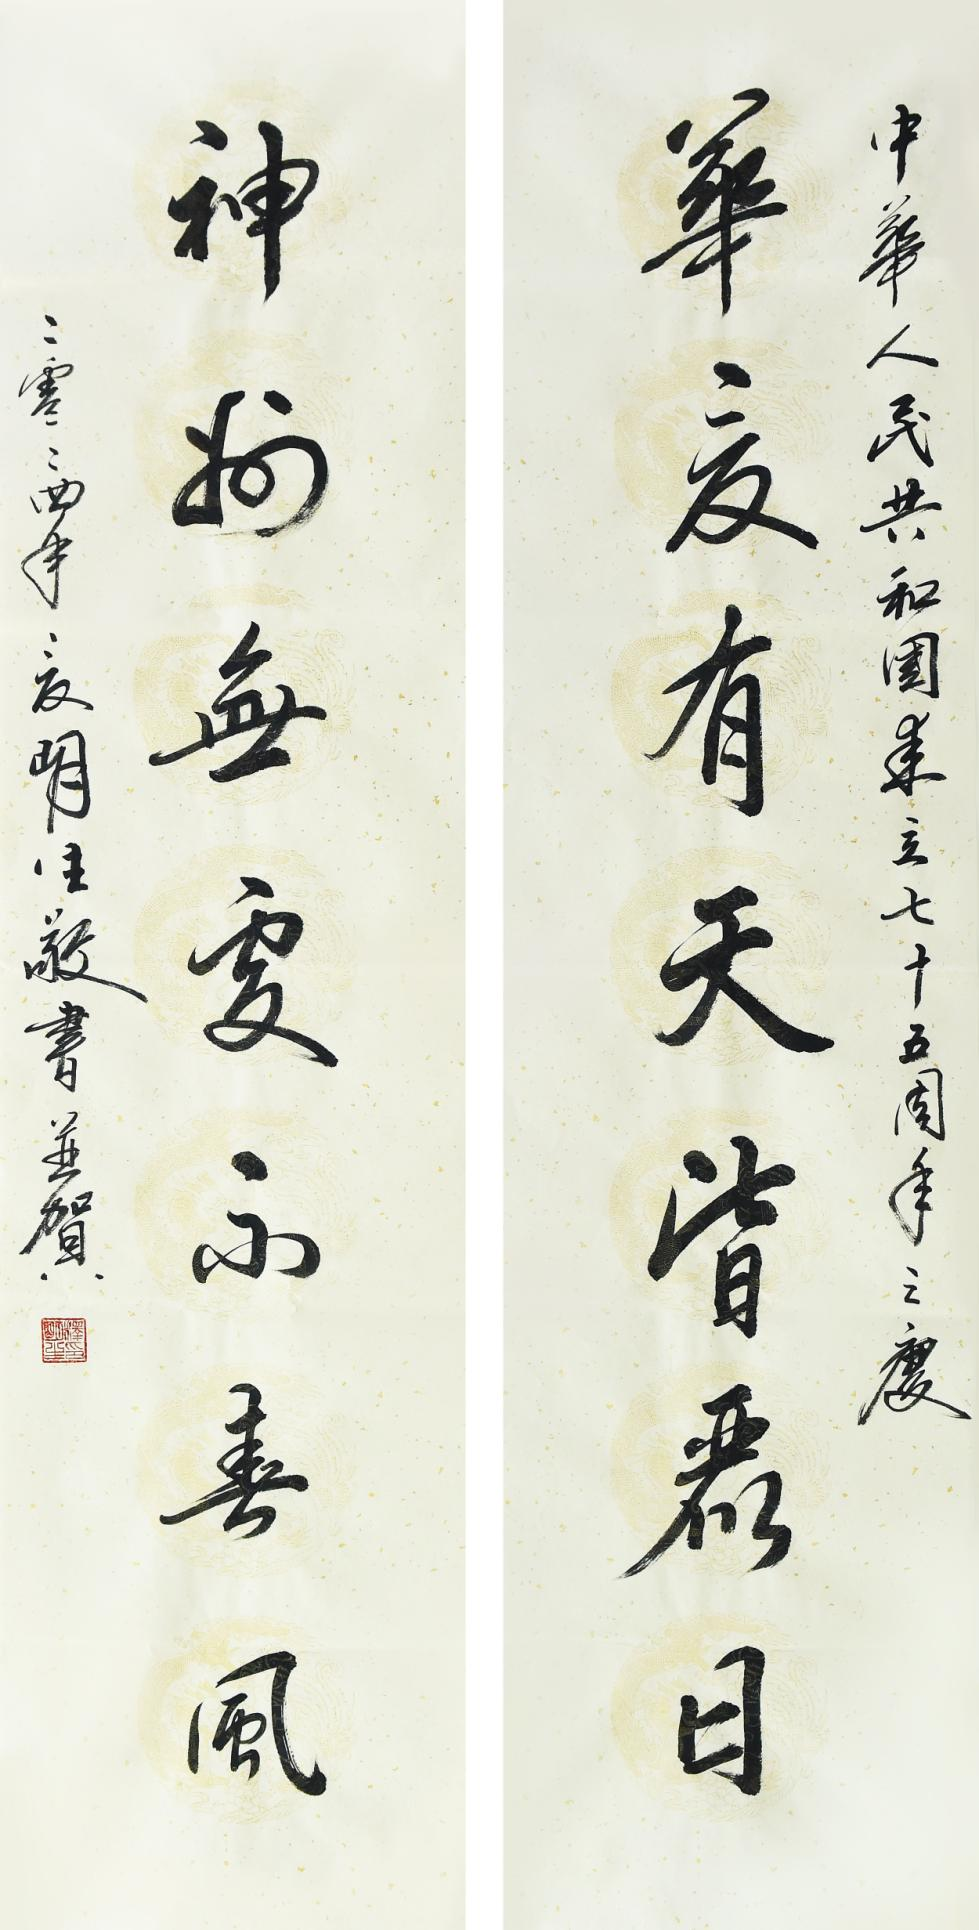 中華人民共和國成立七十五周年之慶
華夏有天皆麗日
神州無處不春風
二零二四年夏明生敬書並賀